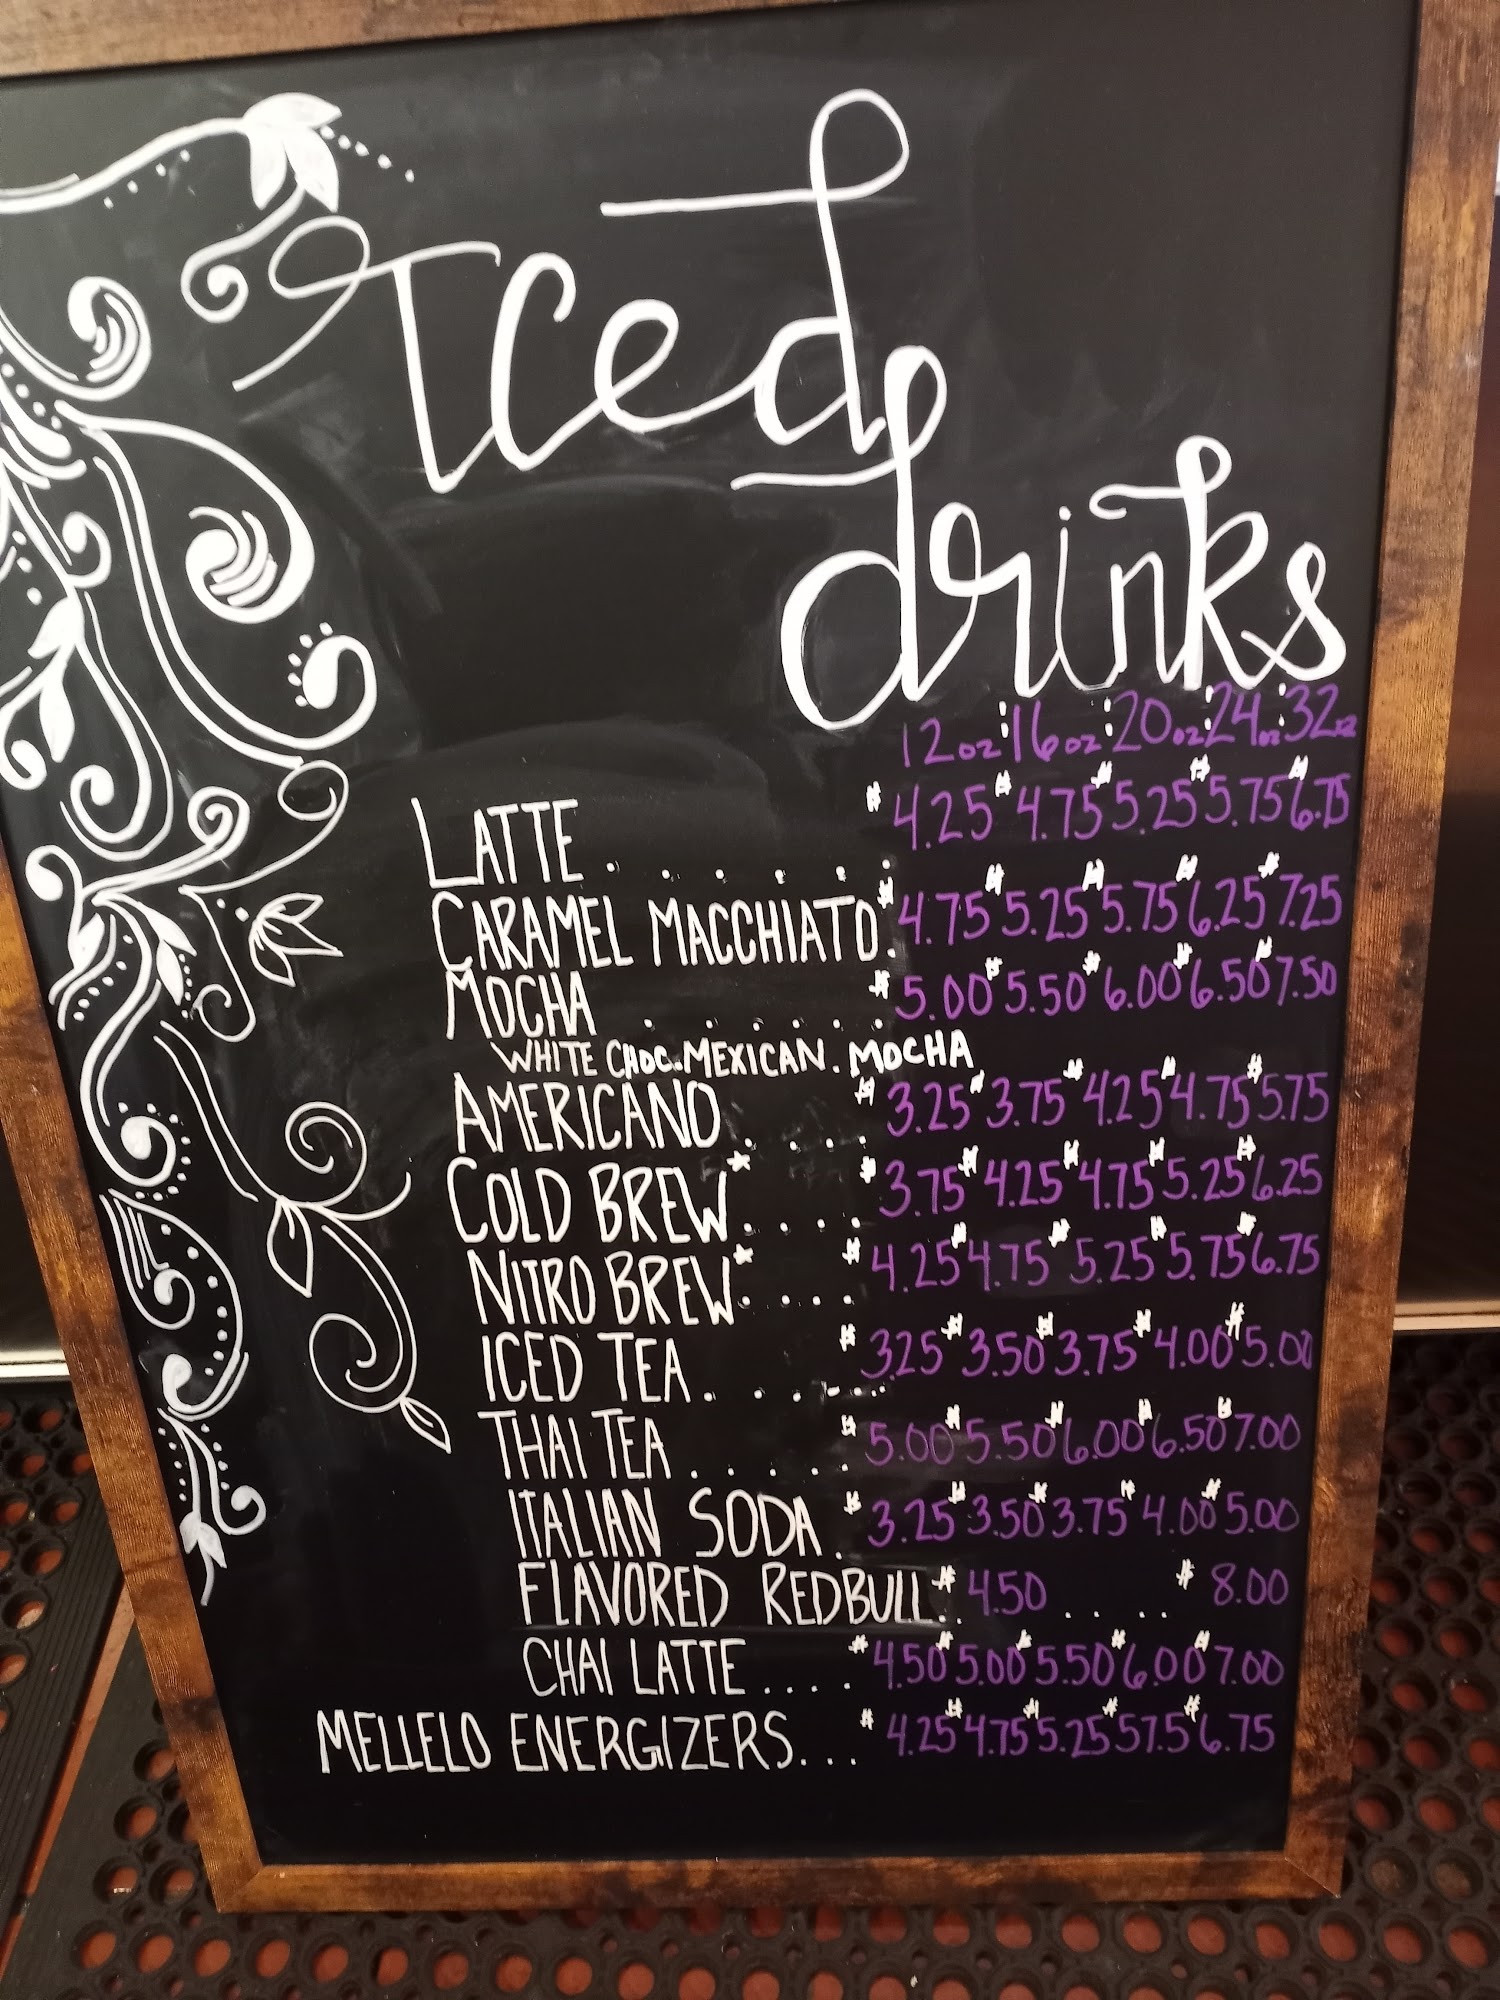 Iced
drinks
12oz 16oz 20oz 24oz 32oz
LATTE . . . . . $4.25 $4.75 $5.25 $5.75 $6.75
CARAMEL MACCHIATO. $4.75 $5.25 $5.75 $6.25 $7.25
MOCHA . . . . . . $5.00 $5.50 $6.00 $6.50 $7.50
WHITE CHOC. MEXICAN. MOCHA
AMERICANO . . . . $3.25 $3.75 $4.25 $4.75 $5.75
COLD BREW* . . . . $3.75 $4.25 $4.75 $5.25 $6.25
NITRO BREW* . . . . $4.25 $4.75 $5.25 $5.75 $6.75
ICED TEA . . . . . . $3.25 $3.50 $3.75 $4.00 $5.00
THAI TEA . . . . . $5.00 $5.50 $6.00 $6.50 $7.00
ITALIAN SODA . $3.25 $3.50 $3.75 $4.00 $5.00
FLAVORED REDBULL.. $4.50 . . . . $8.00
CHAI LATTE . . . . $4.50 $5.00 $5.50 $6.00 $7.00
MELLELO ENERGIZERS... $4.25 $4.75 $5.25 $57.5 $6.75